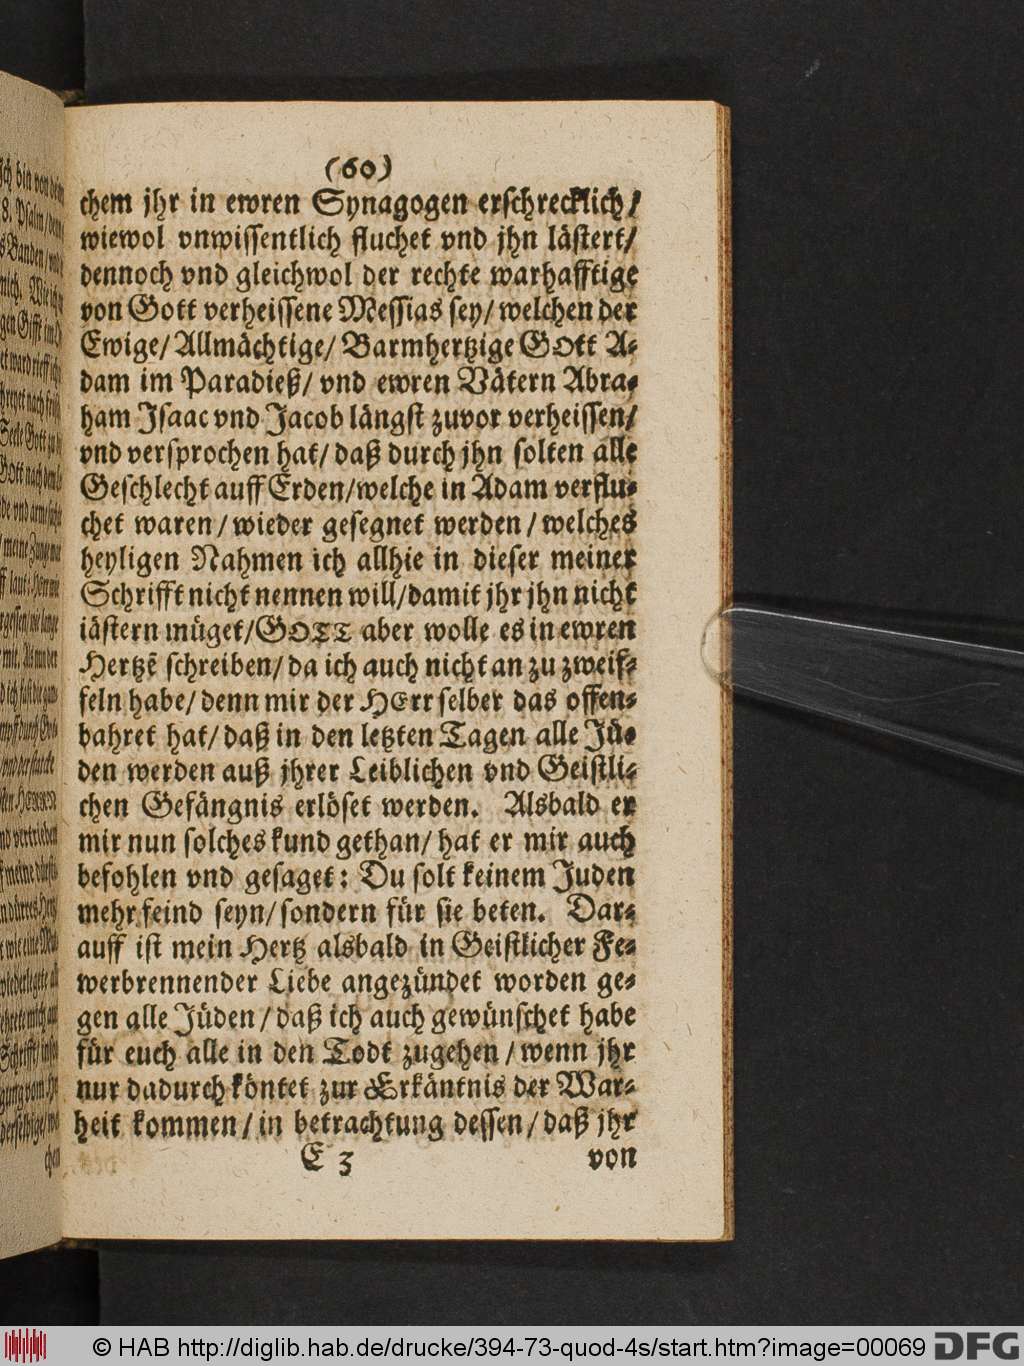 (60)
chem jhr in ewren Synagogen erschrecklich/
wiewol vnwissentlich fluchet vnd jhn lästert/
dennoch vnd gleichwol der rechte warhafftige
von Gott verheissene Messias sey/ welchen der
Ewige/ Allmächtige/ Barmhertzige GOtt A-
dam im Paradieß/ vnd ewren Vätern Abra-
ham Isaac vnd Jacob längst zuvor verheissen/
vnd versprochen hat/ daß durch jhn solten alle
Geschlecht auff Erden/welche in Adam verflu-
chet waren/ wieder gesegnet werden/ welches
heyligen Nahmen ich allhie in dieser meiner
Schrifft nicht nennen will/damit jhr jhn nicht
iästern müget/GOTT aber wolle es in ewren
Hertzẽ schreiben/ da ich auch nicht an zu zweif-
feln habe/ denn mir der HErr selber das offen-
bahret hat/ daß in den letzten Tagen alle Jü-
den werden auß jhrer Leiblichen vnd Geistli-
chen Gefängnis erlöset werden. Alsbald er
mir nun solches kund gethan/ hat er mir auch
befohlen vnd gesaget: Du solt keinem Juden
mehr feind seyn/ sondern für sie beten. Dar-
auff ist mein Hertz alsbald in Geistlicher Fe-
werbrennender Liebe angezündet worden ge-
gen alle Jüden/ daß ich auch gewünschet habe
für euch alle in den Todt zugehen/ wenn jhr
nur dadurch köntet zur Erkäntnis der War-
heit kommen/ in betrachtung dessen/ daß jhr
E 3 von
© HAB http://diglib.hab.de/drucke/394-73-quod-4s/start.htm?image=00069 DFG